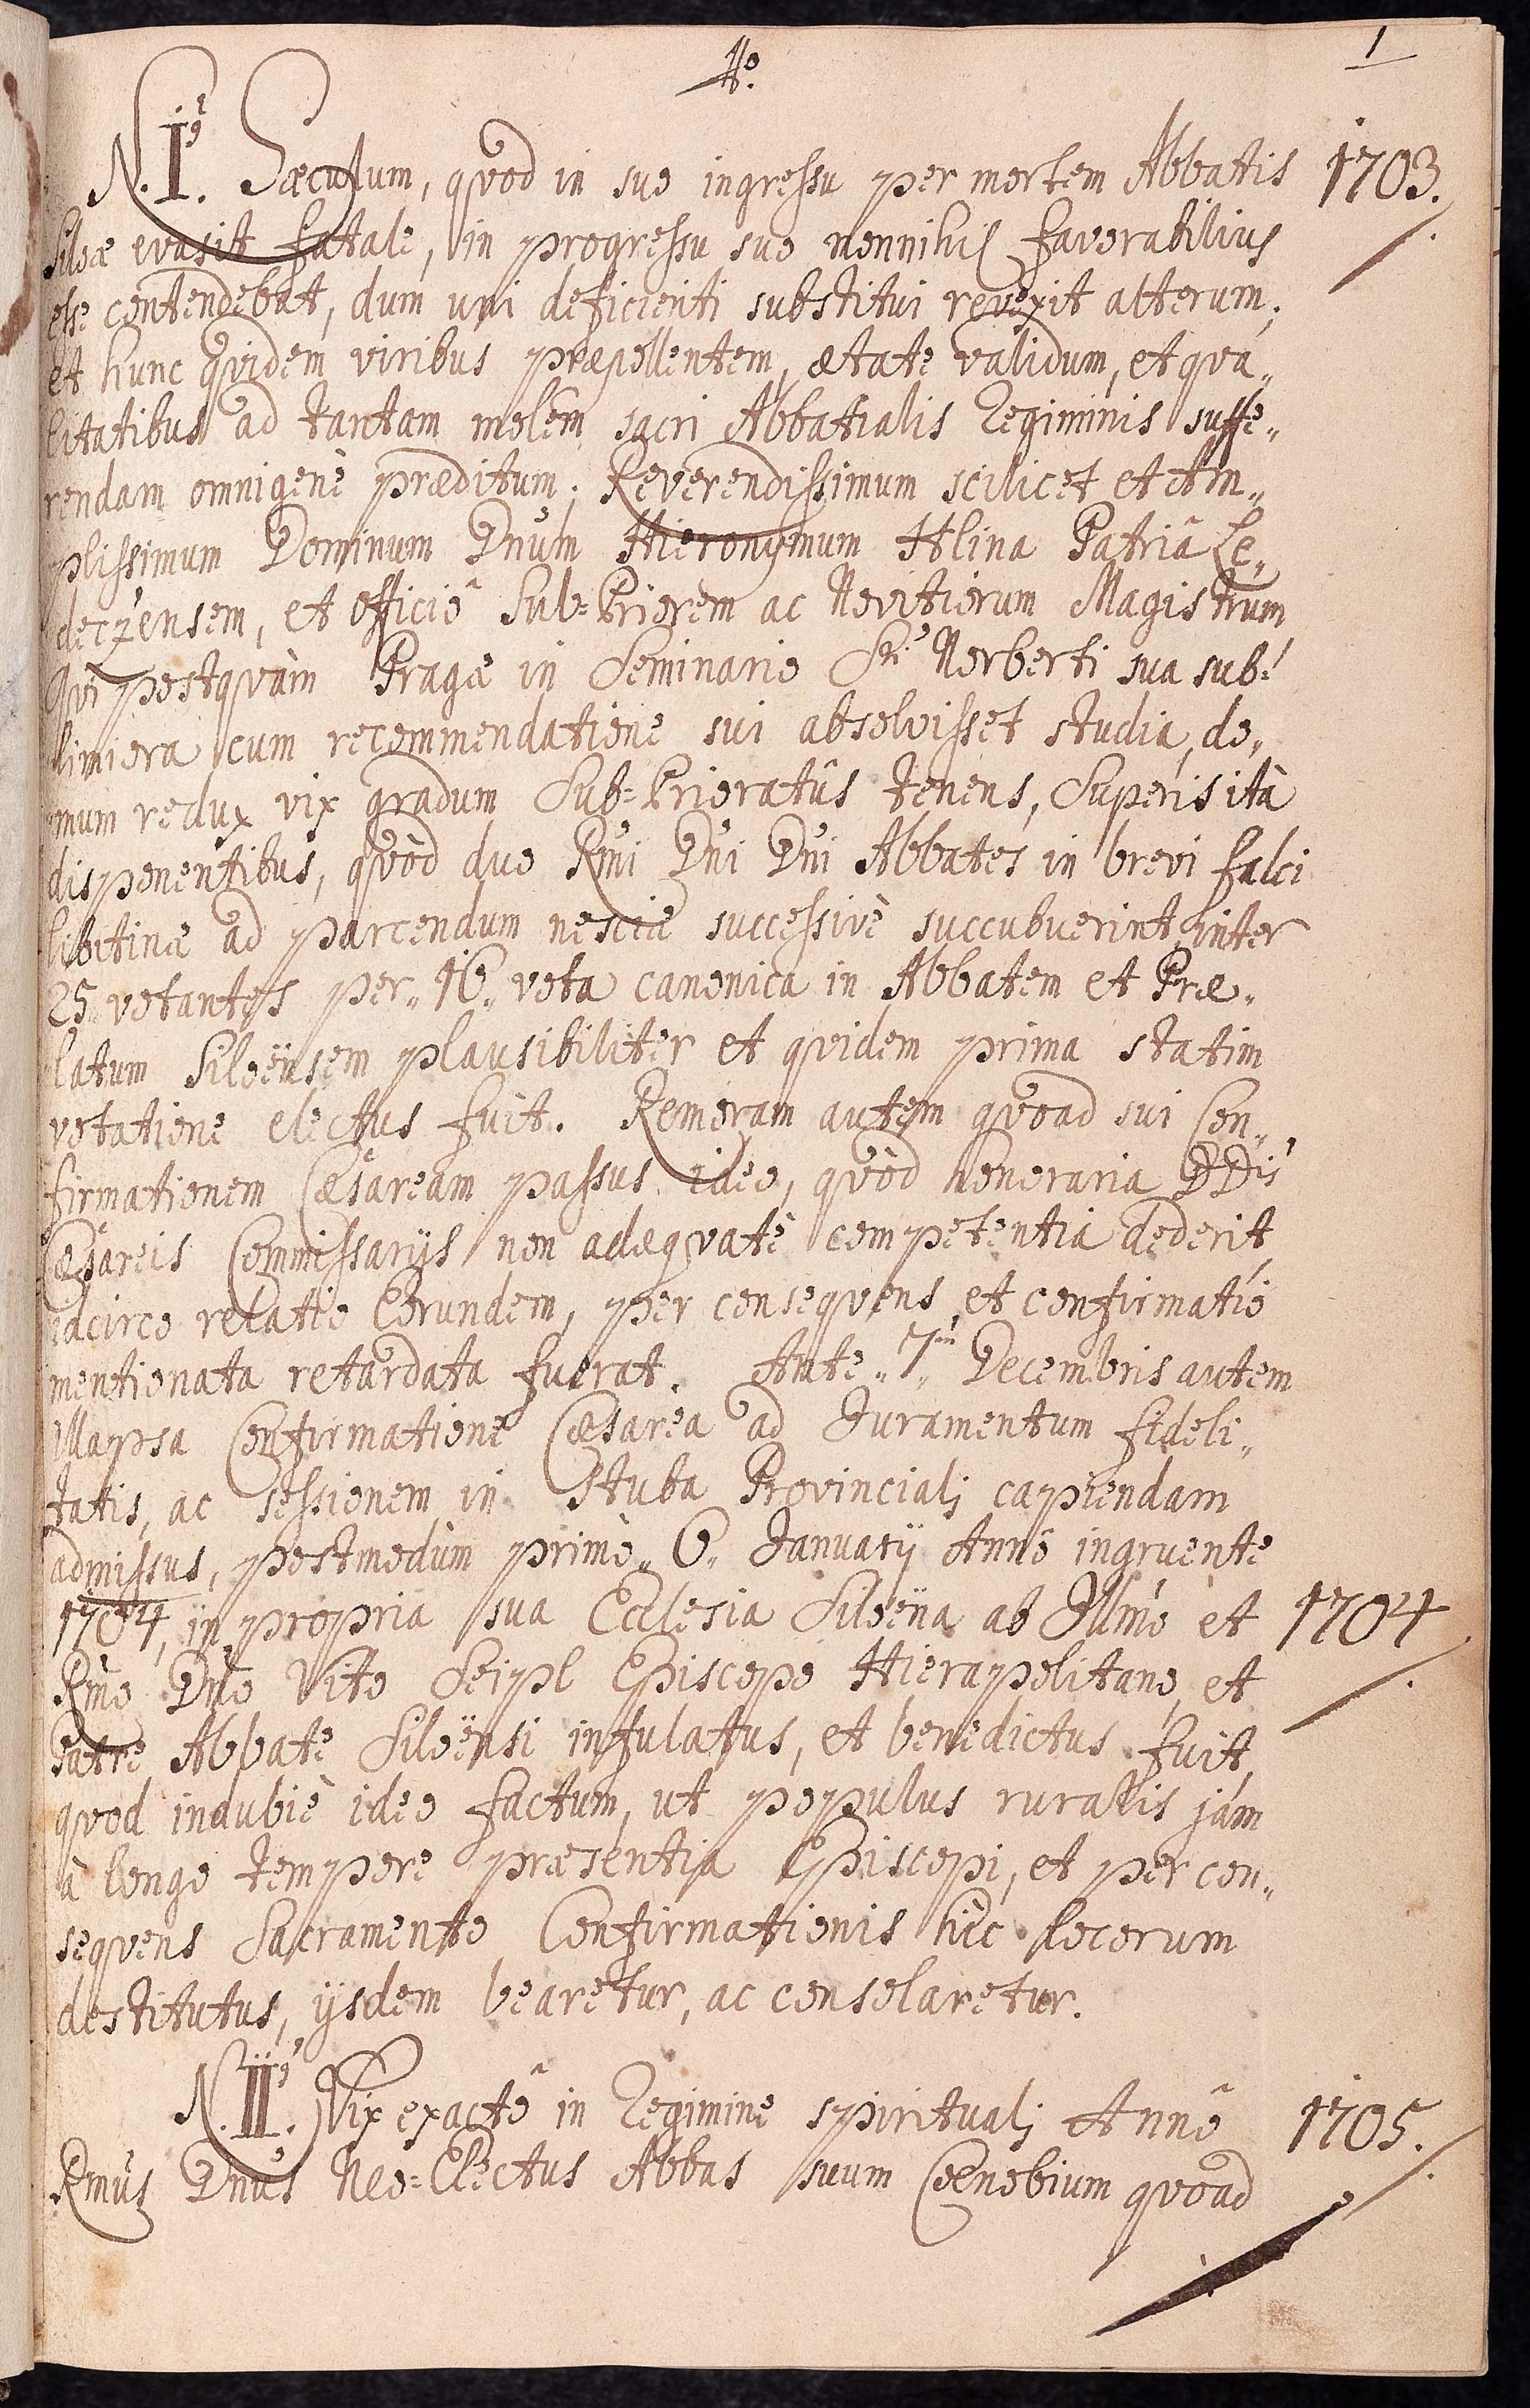 1
N. I. Sæculum, qvod in suo ingreſsu per mortem Abbatis 1703.
Siloæ evasit fatale, in progreſsu suo nonnihil favorabilius
eſse contendebat, dum uni deficienti substitui revexit alterum;
et hunc qvidem viribus præpollentem, ætate validum, et qva„
litatibus ad tantam molem sacri Abbatialis Regiminis suffe„
rendam omnigenè præditum; Reverendiſsimum scilicet et Am„
pliſsimum Dominum Dnum Hieronymum Hlina Patriâ Le„
deczensem, et officiô Sub=Priorem ac Novitiorum Magistrum
Qvi postqvàm Pragæ in Seminario Sti Norberti sua sub=
limiora cum recommendatione sui absolviſset studia, do„
mum redux vix gradum Sub=Prioratûs tenens, Superis ità
disponentibus, qvòd duo Rmi Dni Dni Abbates in brevi falci
libitinæ ad parcendum nesciæ succeſsivè succubuerint, inter
25 votantes per „16„ vota canonica in Abbatem et Præ„
latum Siloënsem plausibiliter et qvidem prima statim
votatione electus fuit. Remoram autem qvoad sui Con„
firmationem Cæsaream paſsus ideo, qvòd honoraria DDis
Cæsareis Commiſsarijs non adæqvatè competentia dederit,
idcirco relatio Eorundem, per conseqvens et confirmatio
mentionata retardata fuerat. Ante „7„ Decembris autem
illapsa Confirmatione Cæsarea ad Juramentum fideli„
tatis, ac seſsionem in Stuba Provincialj capiendam
admiſsus, postmodùm primò „6„ Januarij Annô ingruente
1704, in propria sua Ecclesia Siloëna ab Illmo et 1704
Rmo Dno Vito Seipl Episcopo Hierapolitano, et
Patre Abbate Siloënsi infulatus, et benedictus fuit,
qvod indubiè ideo factum, ut populus ruralis jám
à longo tempore præsentia Episcopi, et per con„
seqvens Sacramento Confirmationis hîc locorum
destitutus, ijsdem bearetur, ac consolaretur.
N. II. Vix exactô in Regimine spiritualj Annô 1705.
Rmus Dnus Neo=Electus Abbas suum Cœnobium qvoad